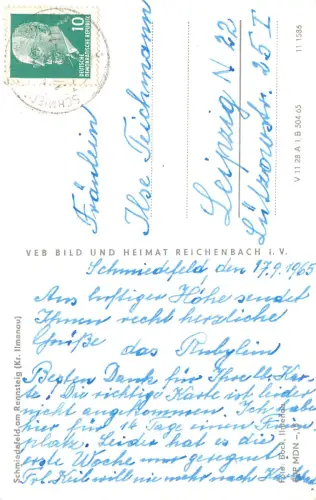 10
DEUTSCHE
DEMOKRATISCHE
REPUBLIK
Fräulein
Ilse Teichmann
Leipzig N 22
Lützowstr. 25 I
11 1586
V 11 28 A 1 B 504/65
VEB BILD UND HEIMAT REICHENBACH i. V.
Schmiedefeld am Rennsteig (Kr. Ilmenau)
Schmiedefeld den 17.9.1965
Aus luftiger Höhe sendet
Ihnen recht herzliche
Grüße
das
Besten Dank für Ihre lb. Kar-
te! Die richtige Karte ist leider
nicht angekommen. Ich habe
hier für 14 Tage einen
platz. Leider hat es die
erste Woche nur geregnet
Frl. Keil will nie mehr nach